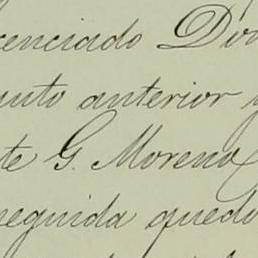 cenciado Don
unto anterior y
te G. Moreno
seguida quedo